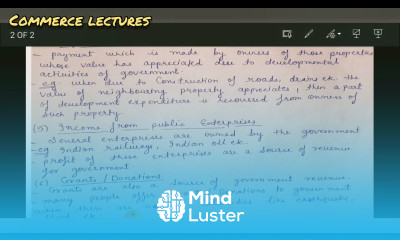 COMMERCE LECTURES
2 OF 2
- payment which is made by owners of those properties
whose value has appreciated due to developmental
activities of government.
eg. when due to construction of roads, drains etc. the
value of neighbouring property appreciates, then a part
of development expenditure is recovered from owners of
such property.
(5) Income from public Enterprises
Several enterprises are owned by the government
eg Indian railways, Indian oil etc.
profit of these enterprises are a source of revenue
for government
(c) Grants / Donations
Grants are also a source of government revenue.
many people offer to government
when there are like earthquake,
Mind
Luster